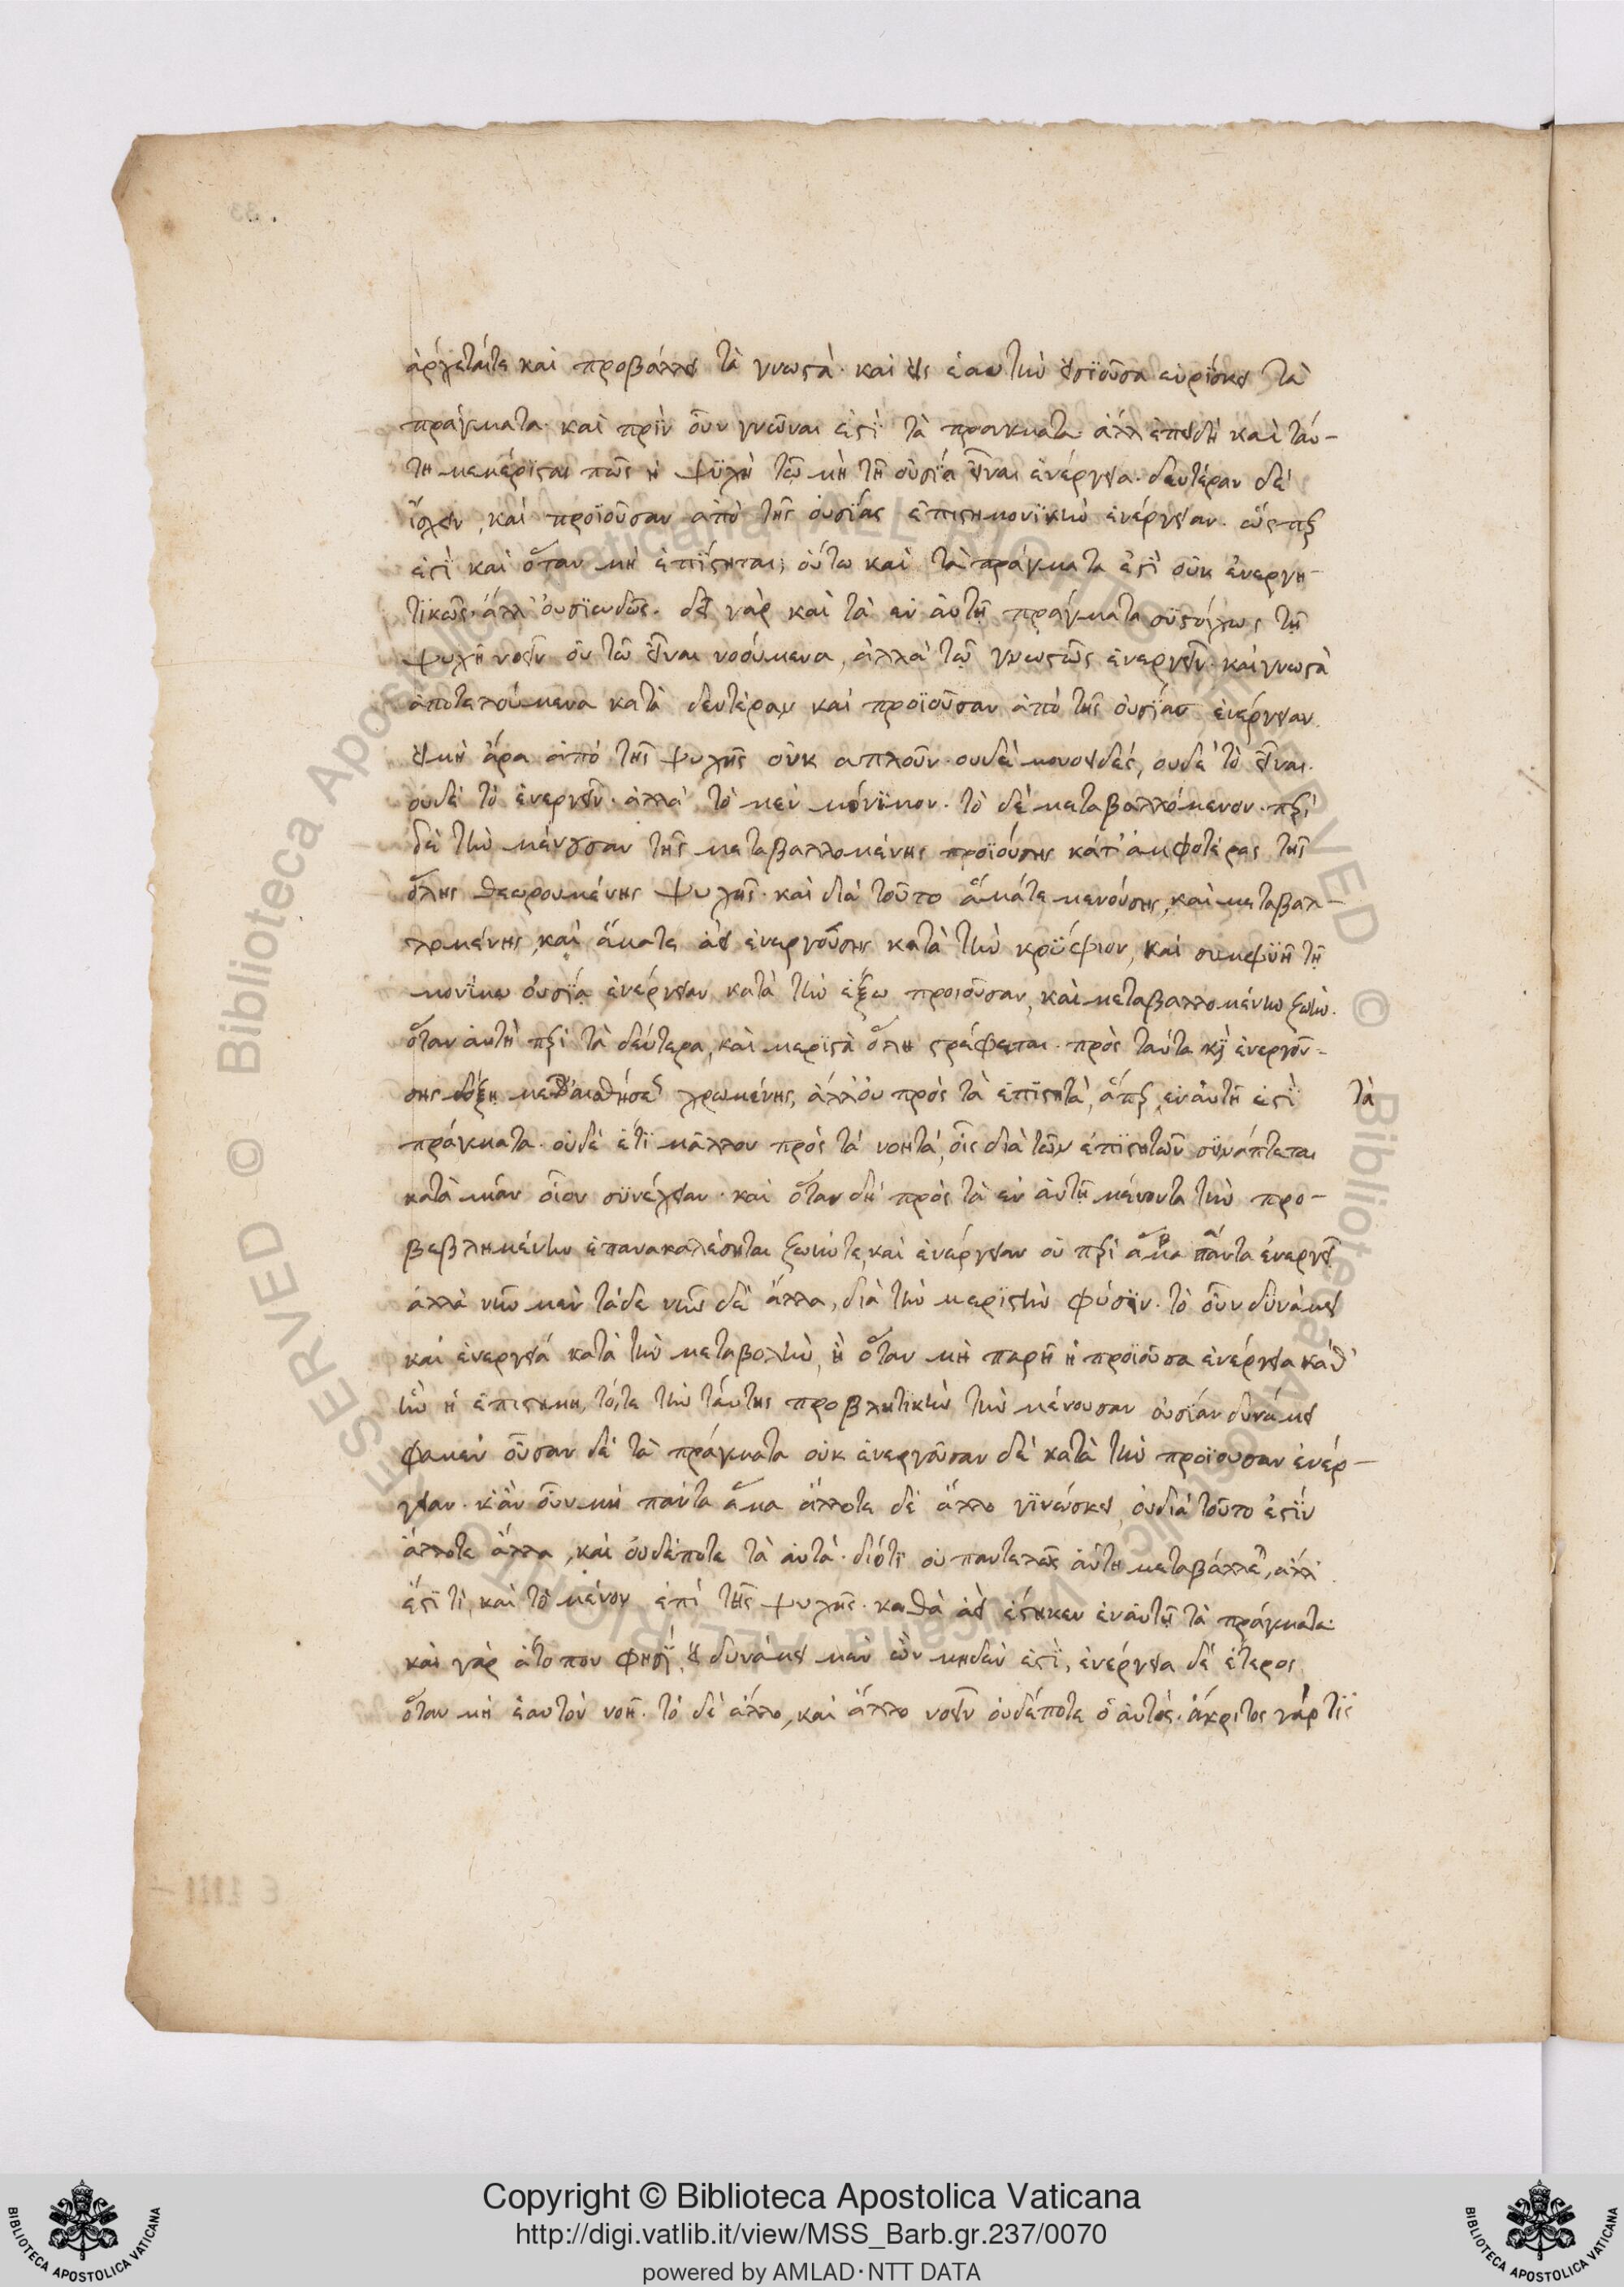 ἀρύεταίτε καὶ προβάλλει τὰ γνωστά. καὶ εἰς ἑαυτὴν εἰσϊοῦσα εὑρίσκει τὰ
πράγματα. καὶ πρὶν οὖν γνῶναι εἰσὶ τὰ πράγματα. ἀλλ ἐπειδὴ καὶ ταύ-
τη μεμέρισται πῶς ἡ ψϋχὴ τῶ μὴ τῆ οὐσία εἶναι ἐνέργεια. δευτέραν δὲ
ἴσχειν, καὶ προϊοῦσαν ἀπὸ τῆς οὐσίας ἐπιστημονϊκὴν ἐνέργειαν. ὥσπερ
ἐστὶ καὶ ὅταν μὴ ἐπίστηται, οὕτω καὶ τὰ πράγματα ἐστὶ οὐκ ἐνεργη-
τϊκῶς. ἀλλ' οὐσϊωδῶς. δεῖ γὰρ καὶ τὰ ἐν αὐτῇ πράγματα συστοίχως τῇ
ψυχῆ νοεῖν οὐ τῶ εἶναι νοούμενα, ἀλλὰ τῷ γνωστῶς ἐνεργεῖν. καὶ γνωστὰ
ἀποτελούμενα κατὰ δευτέραν καὶ προϊοῦσαν ἀπὸ τῆς οὐσίας ἐνέργειαν.
εἰ μὴ ἄρα ἀπὸ τῆς ψυχῆς οὐκ ἁπλοῦν. οὐδὲ μονοειδές, οὐδὲ τὸ εἶναι.
οὐδὲ τὸ ἐνεργεῖν. ἀλλὰ τὸ μεν μόνϊμον. τὸ δὲ μεταβαλλόμενον. περὶ
δὲ τὴν μένουσαν τῆς μεταβαλλομένης προϊούσης κατ' ἀμφοτέρας τῆς
ὅλης θεωρουμένης ψυχῆς. καὶ διὰ τοῦτο ἅμάτε μενούσης, καὶ μεταβαλ-
λομένης, καὶ ἅματε ἀεὶ ἐνεργούσης κατὰ τὴν κρύφιον, καὶ συμφυῆ τῇ
μονίμω οὐσίᾳ ἐνέργειαν κατὰ τὴν ἔξω προιοῦσαν, καὶ μεταβαλλομένην ζωήν.
ὅταν αὐτὴ περὶ τὰ δεύτερα, καὶ μερϊστὰ ὅλη στρέφεται. πρὸς ταῦτα καὶ ἐνεργού-
σης δόξῃ μετ' αἰσθήσεως χρωμένης, ἀλλ' οὐ πρὸς τὰ ἐπϊστητὰ, ἅπερ ἐν αὐτῇ ἐστὶ τὰ
πράγματα. οὐδὲ ἔτϊ μᾶλλον πρὸς τὰ νοητά, οἷς διὰ τῶν ἐπϊστητῶν συνάπτεται
κατὰ μίαν οἷον συνέχειαν. καὶ ὅταν δὴ πρὸς τὰ ἐν αὐτῇ μένοντα τὴν προ-
βεβλημένην ἐπανακαλέσηται ζωήν τε, καὶ ἐνέργειαν οὐ περὶ ἅμα πάντα ἐνεργεῖ
ἀλλὰ νῦν μὲν τάδε νῦν δὲ ἄλλα, διὰ τὴν μερϊστὴν φύσϊν. τὸ οὖν δυνάμει
καὶ ἐνεργεία κατὰ τὴν μεταβολὴν, ἢ ὅταν μὴ παρῆ ἡ προϊοῦσα ἐνέργεια καθ'
ἣν ἡ ἐπιστήμη, τότε τὴν ταύτης προβλητϊκὴν τὴν μένουσαν οὐσίαν δυνάμει
φαμὲν οὖσαν δὲ τὰ πράγματα οὐκ ἐνεργοῦσαν δὲ κατὰ τὴν προϊοῦσαν ἐνέρ-
γειαν. κἂν οὖν μὴ πάντα ἅμα ἄλλοτε δὲ ἄλλο γϊνώσκει, οὐ διὰ τοῦτο ἐστίν
ἄλλοτε ἄλλα, καὶ οὐδέποτε τὰ αὐτά. διότϊ οὐ παντελῶς αὕτη μεταβάλλει, ἀλλ'
ἔστϊ τι, καὶ τὸ μένον ἐπὶ τῆς ψυχῆς. καθὰ ἀεὶ ἕστηκεν ἐν αὐτῇ τὰ πράγματα
καὶ γὰρ ἄτοπον φησΐ, εἰ δυνάμει μὲν ὢν μηδέν ἐστὶ, ἐνέργεια δὲ ἕτερος
ὅταν μὴ ἑαυτὸν νοῆ. τὸ δὲ ἄλλο, καὶ ἄλλο νοεῖν οὐδέποτε ὁ αὐτός. ἄκριτος γάρ τϊς
Copyright © Biblioteca Apostolica Vaticana
http://digi.vatlib.it/view/MSS_Barb.gr.237/0070
powered by AMLAD·NTT DATA